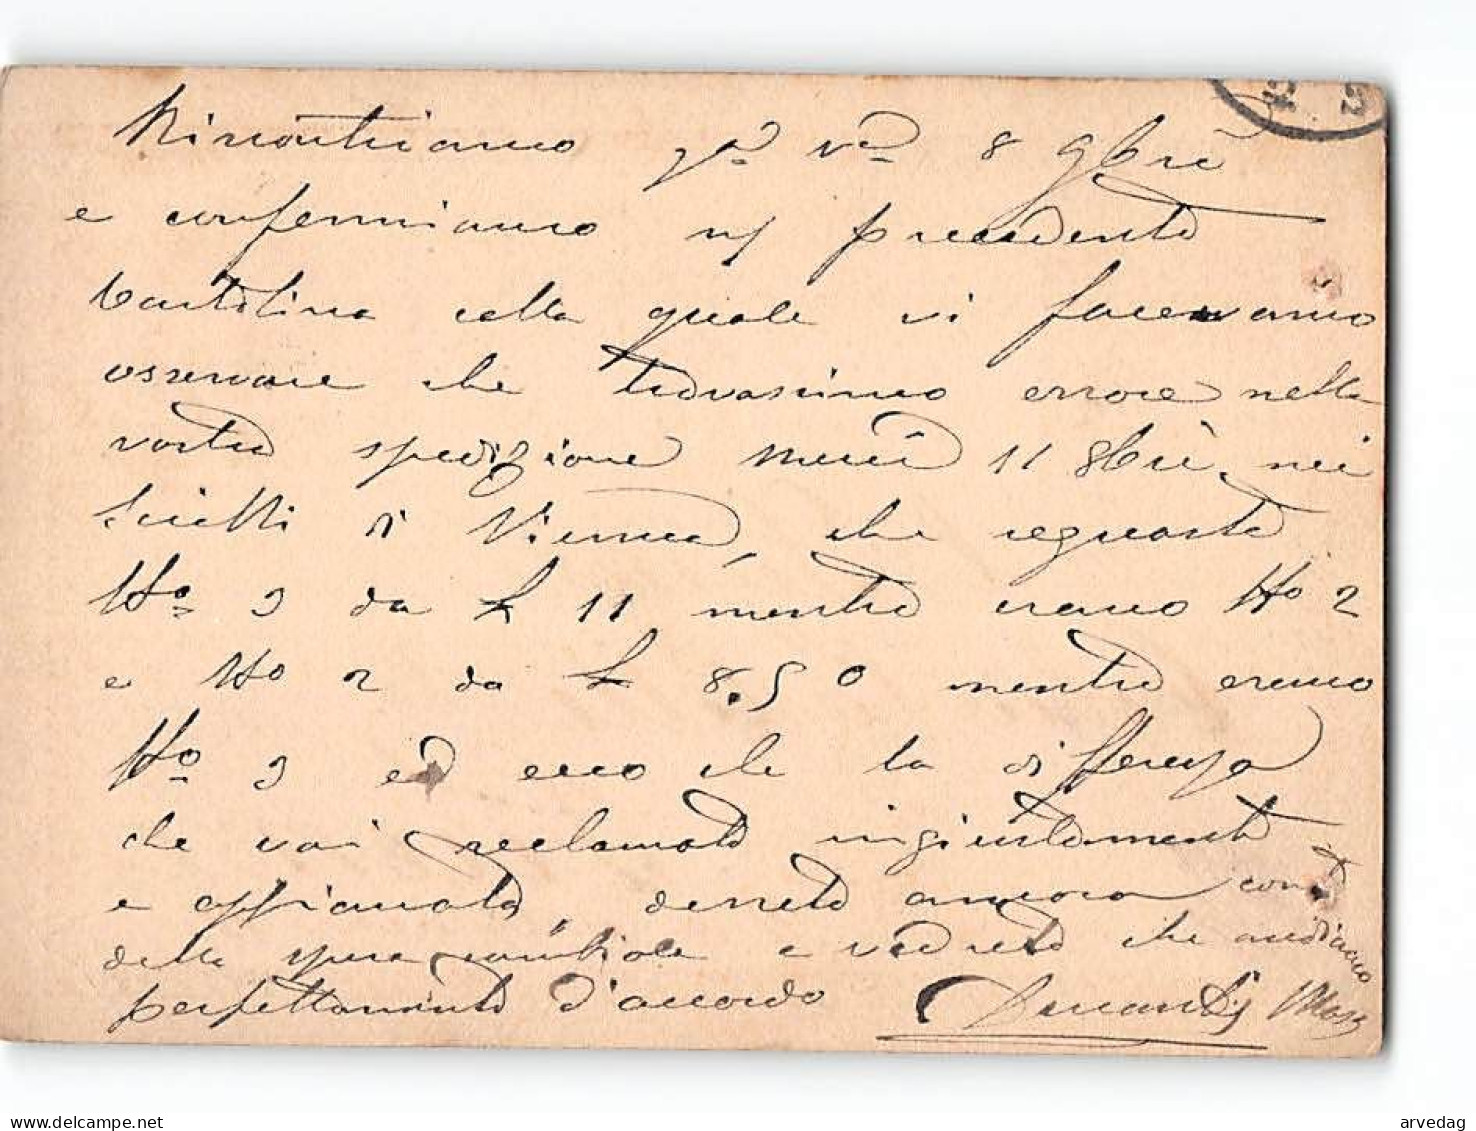 Riscontriamo pa va 8 9bre
e confermiamo n/ precedente
Cartolina colla quale vi facevamo
osservare che trovassimo errore nella
vostra spedizione merci 11 8bre nei
Scialli di Vienna, che segnaste
No 3 da £ 11 mentre erano No 2
e No 2 da £ 8.50 mentre erano
No 3 ed ecco che la differenza
che voi reclamate ingiustamente
e appianata, derrete ancora conto
della spesa cambiale e vedrete che andiamo
perfettamente d'accordo
delcampe.net
arvedag